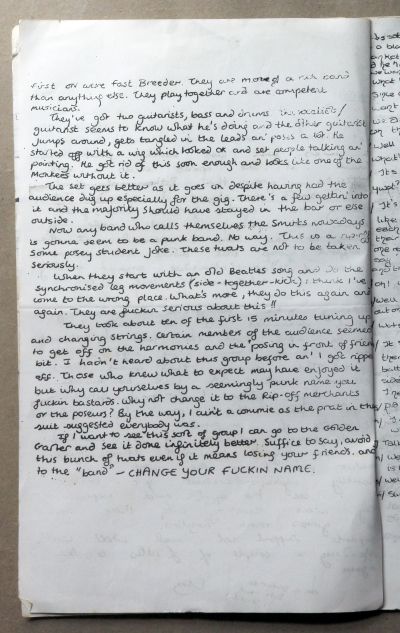 First on were Fast Breeder. They are more of a rock band
than anything else. They play together and are competent
musicians.
They've got two guitarists, bass and drums
guitarist seems to know what he's doing and the other guitarist
jumps around, gets tangled in the leads an' poses a lot. He
started off with a wig which looked OK and set people talking an'
pointing. He got rid of this soon enough and looks like one of the
Monkees without it.
The set gets better as it goes on despite having had the
audience dug up especially for the gig. There's a few gettin' into
it and the majority should have stayed in the bar or else
outside.
Now any band who calls themselves the Smurts nowadays
is gonna seem to be a punk band. No way. This is a
some posey student joke. These twats are not to be taken
seriously.
When they start with an old Beatles song and do the
synchronised leg movements (side-together-kick) I think I've
come to the wrong place. What's more, they do this again and
again. They are fuckin serious about this!!
They took about ten of the first 15 minutes tuning up
and changing strings. Certain members of the audience seemed
to get off on the harmonies and the "posing in front of friends
bit. I hadn't heard about this group before an' I got ripped
off. Those who knew what to expect may have enjoyed it
but why call yourselves by a seemingly punk name you
fuckin bastards. Why not change it to the Rip-off merchants
or the poseurs? By the way, I ain't a commie as the prat in the
suit suggested everybody was.
If I want to see this sort of group I can go to the Golden
Garter and see it done infinitely better. Suffice to say, avoid
this bunch of twats even if it means losing your friends. and
to the "band" - CHANGE YOUR FUCKIN NAME.